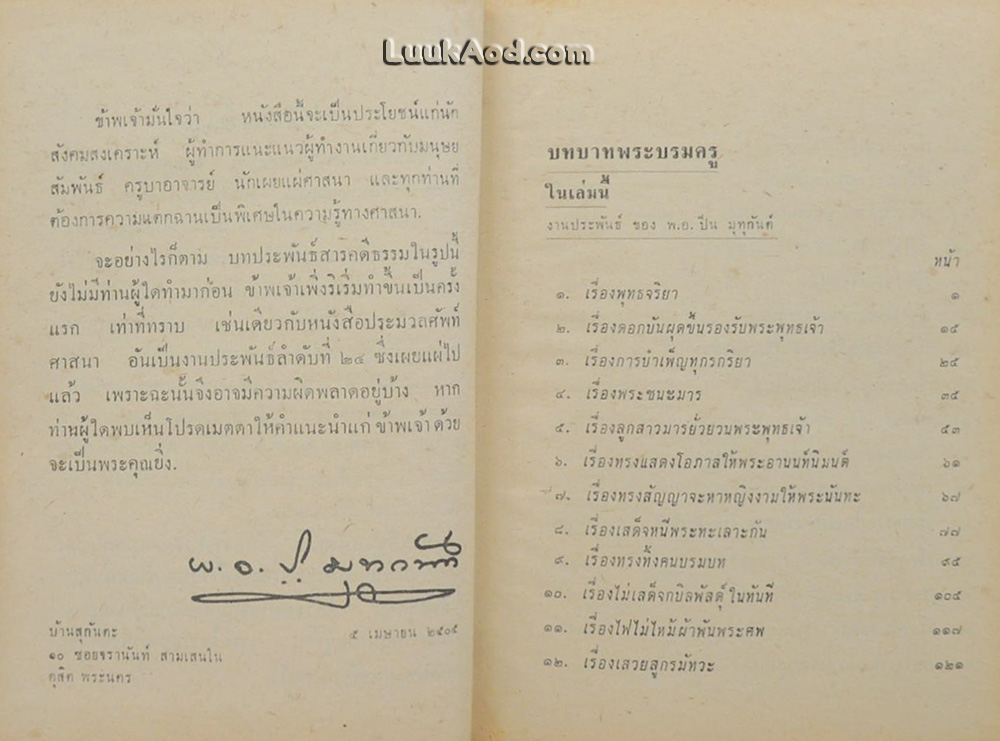 LuukAod.com
ข้าพเจ้ามั่นใจว่า หนังสือนี้จะเป็นประโยชน์แก่นัก
สังคมสงเคราะห์ ผู้ทำการแนะแนวผู้ทำงานเกี่ยวกับมนุษย
สัมพันธ์ ครูบาอาจารย์ นักเผยแผ่ศาสนา และทุกท่านที่
ต้องการความแตกฉานเป็นพิเศษในความรู้ทางศาสนา.
จะอย่างไรก็ตาม บทประพันธ์สารคดีธรรมในรูปนี้
ยังไม่มีท่านผู้ใดทำมาก่อน ข้าพเจ้าเพิ่งริเริ่มทำขึ้นเป็นครั้ง
แรก เท่าที่ทราบ เช่นเดียวกับหนังสือประมวลศัพท์
ศาสนา อันเป็นงานประพันธ์ลำดับที่ ๒๔ ซึ่งเผยแผ่ไป
แล้ว เพราะฉะนั้นจึงอาจมีความผิดพลาดอยู่บ้าง หาก
ท่านผู้ใดพบเห็นโปรดเมตตาให้คำแนะนำแก่ ข้าพเจ้า ด้วย
จะเป็นพระคุณยิ่ง.
พ.อ. ปิ่น มุทุกันต์
บ้านสุกันตะ ๕ เมษายน
๑๐ ซอยจรานันท์ สามเสนใน
ดุสิต พระนคร
บทบาทพระบรมครู
ในเล่มนี้
งานประพันธ์ ของ พ.อ. ปิ่น มุทุกันต์
หน้า
๑. เรื่องพุทธจริยา ๑
๒. เรื่องดอกบัวผุดขึ้นรองรับพระพุทธเจ้า ๑๕
๓. เรื่องการบำเพ็ญทุกรกริยา ๒๕
๔. เรื่องพระชนะมาร ๓๕
๕. เรื่องลูกสาวมารยั่วยวนพระพุทธเจ้า ๕๓
๖. เรื่องทรงแสดงโอภาสให้พระอานนท์นิมนต์ ๖๑
๗. เรื่องทรงสัญญาจะหาหญิงงามให้พระนันทะ ๖๗
๘. เรื่องเสด็จหนีพระทะเลาะกัน ๗๗
๙. เรื่องทรงทิ้งคนบรมบท ๙๕
๑๐. เรื่องไม่เสด็จกบิลพัสดุ์ ในทันที ๑๐๕
๑๑. เรื่องไฟไม่ไหม้ผ้าพันพระศพ ๑๑๗
๑๒. เรื่องเสวยสูกรมัทวะ ๑๒๑